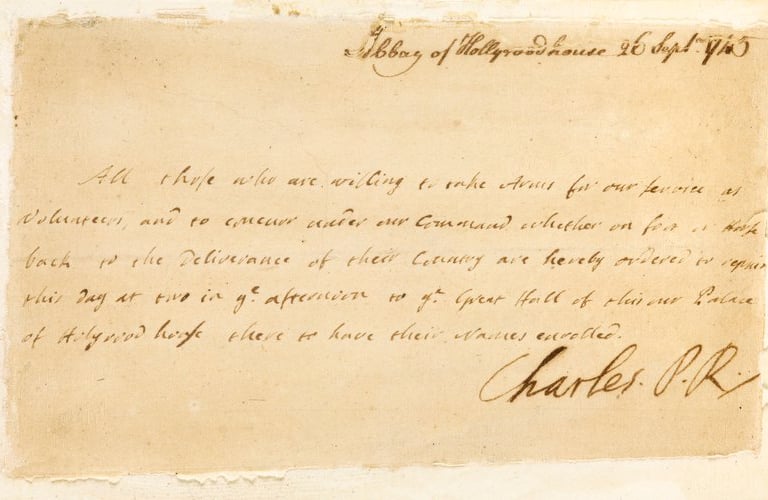 Abbay of Hollyroodhouse 26 Sept. 1745
All those who are willing to take Arms for our service as
Volunteers, and to concur under our Command whether on foot or Horse
back to the Deliverance of their Country are hereby ordered to repair
this Day at two in ye. afternoon to ye. Great Hall of this our Palace
of Holyrood house there to have their Names enrolled.
Charles. P. R.